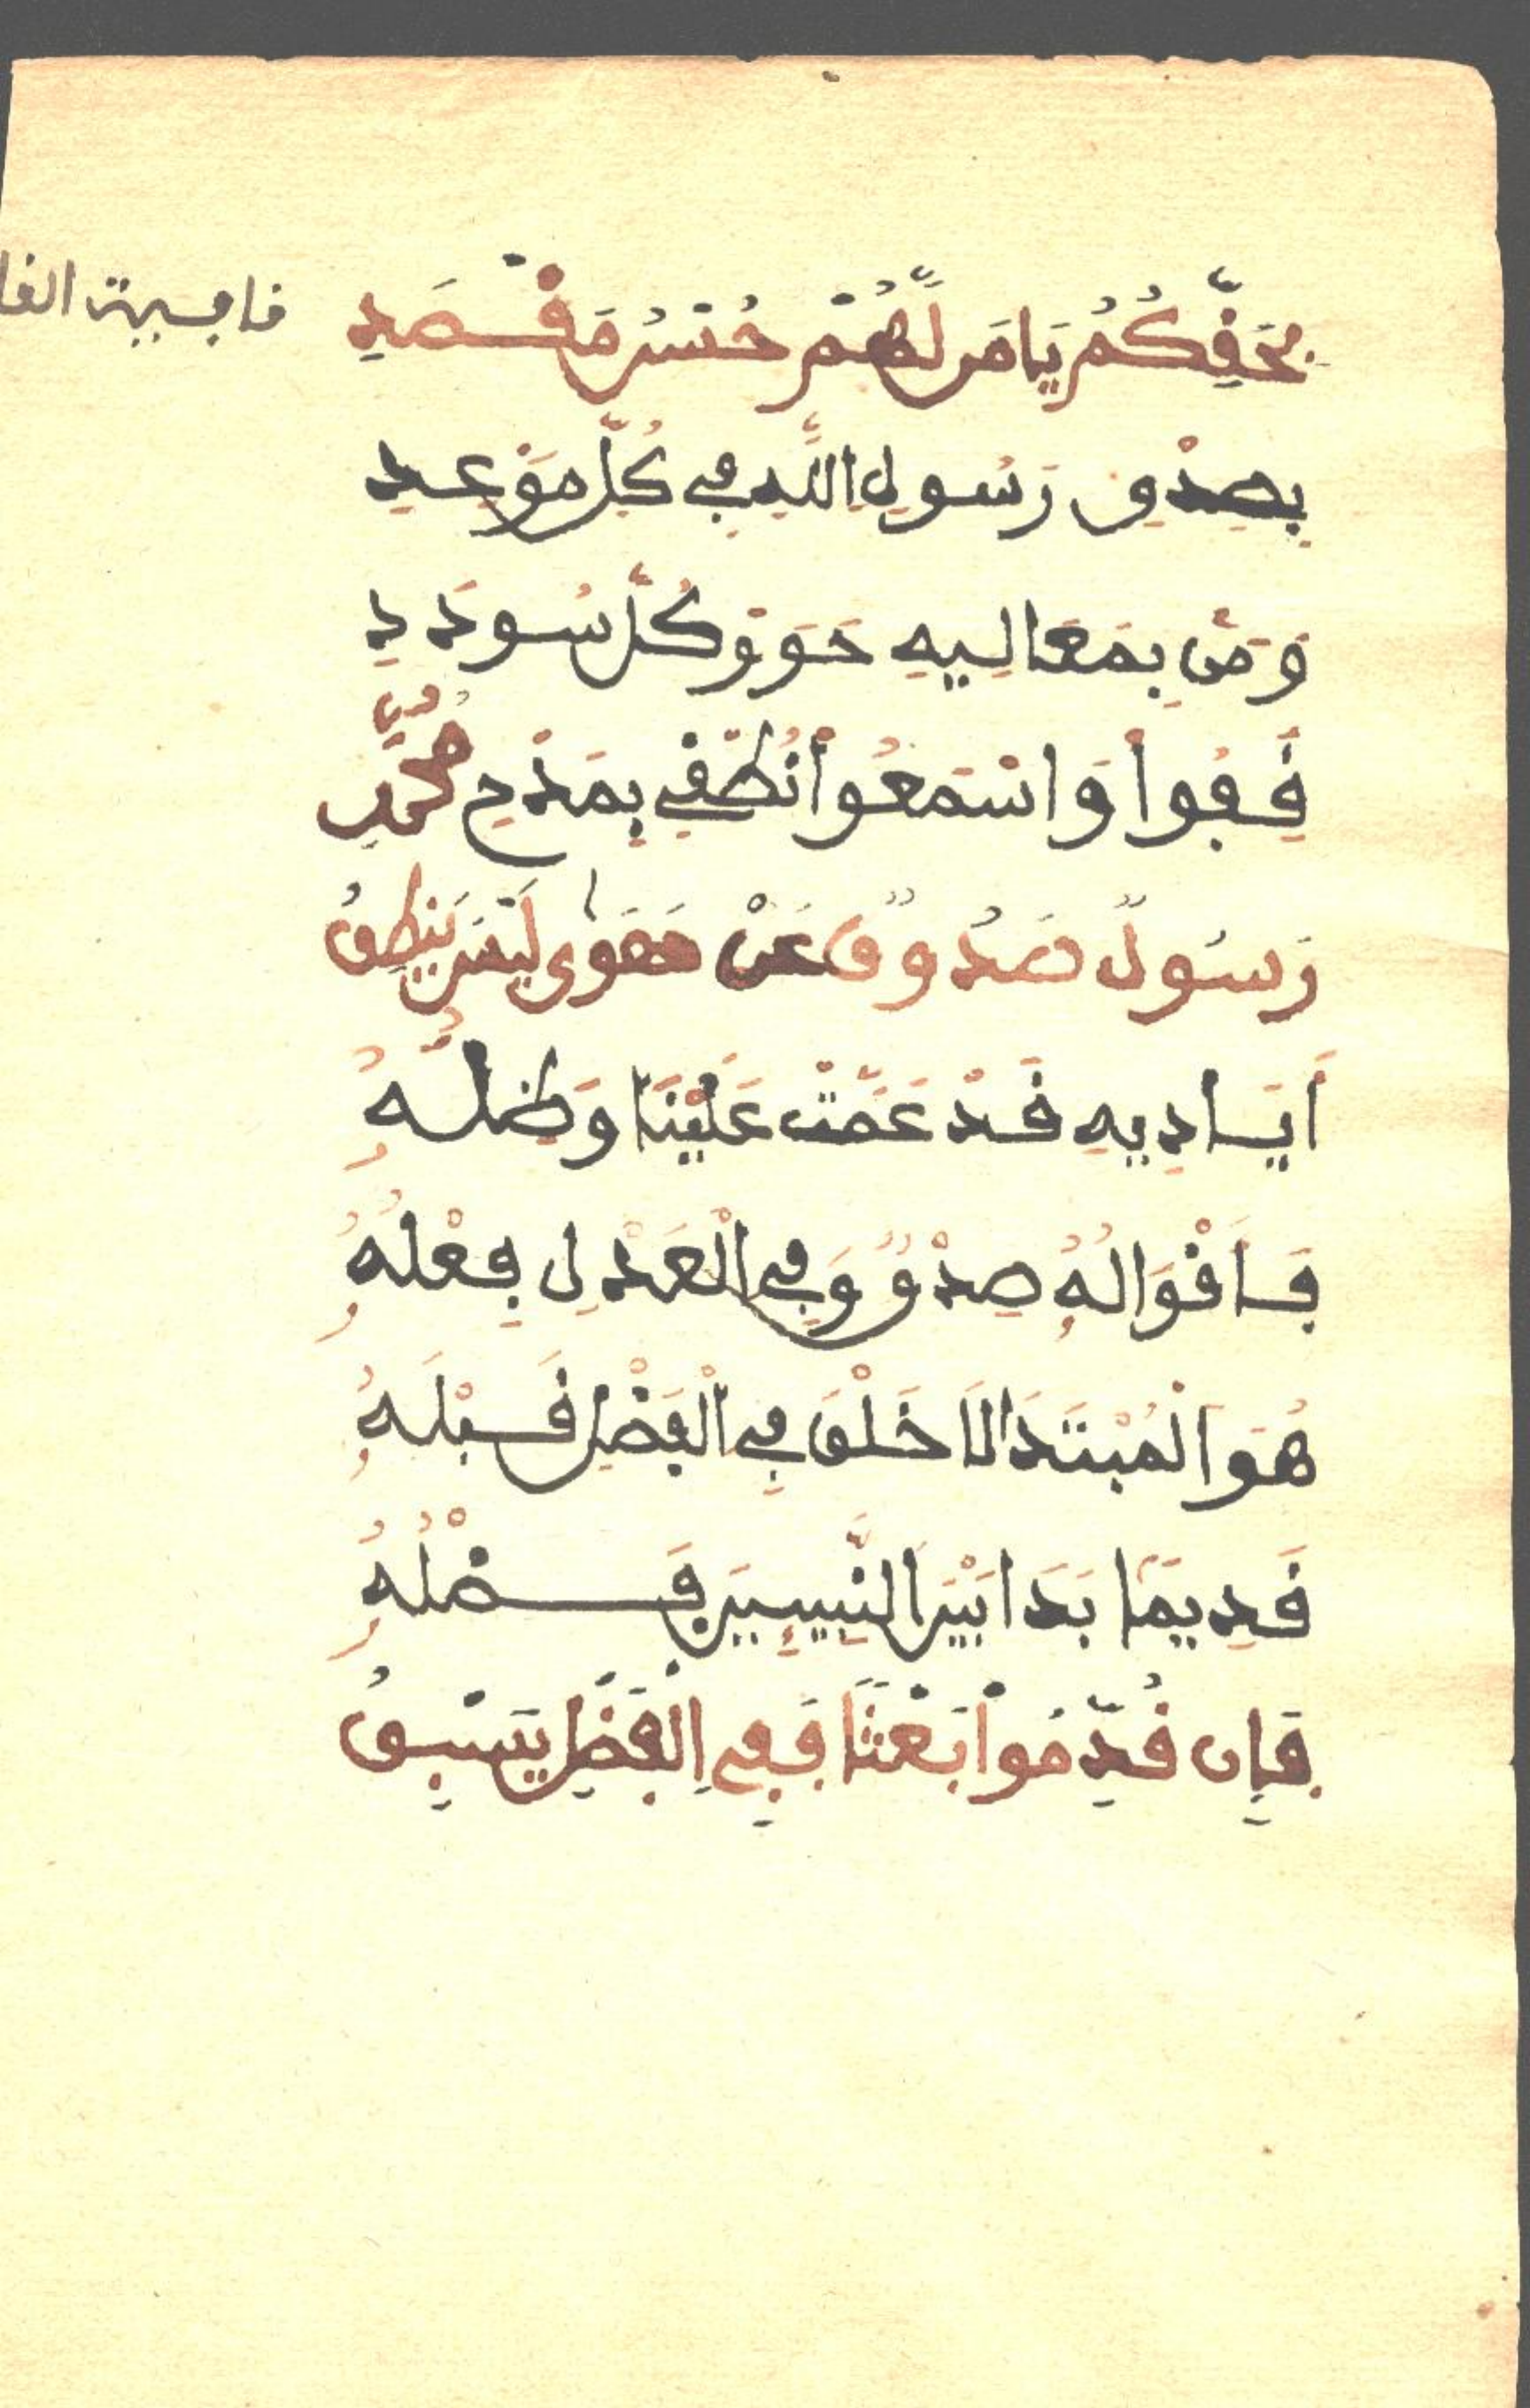 بِحَقِّكُمُ يَا مَن لَّهُمْ حُسْنُ مَقْصَدِ
قافية القا
بِصِدْقِ رَسُولِ اللَّهِ فِي كُلِّ مَوْعِدِ
وَمَن بِمَعَالِيهِ حَوَوْ كُلَّ سُودَدِ
قِفُوا وَاسْتَمَعُوا نُطْقِي بِمَدْحِ مُحَمَّدٍ
رَسُولٌ صَدُوقٌ عَنْ هَوَىٰ لَيْسَ يَنطِقُ
أَيَادِيهِ قَدْ عَمَّتْ عَلَيْنَا وَظِلُّهُ
فَأَقْوَالُهُ صِدْقٌ وَفِي الْعَدْلِ فِعْلُهُ
هُوَ الْمُبْتَدَا لَا خَلْقَ فِي الْفَضْلِ قَبْلَهُ
قَدِيمًا بَدَا بَيْنَ النَّبِيِّينَ فَضْلُهُ
فَإِن قُدِّمُوا بَعْثًا فَفِي الْفَضْلِ يَسْبِقُ